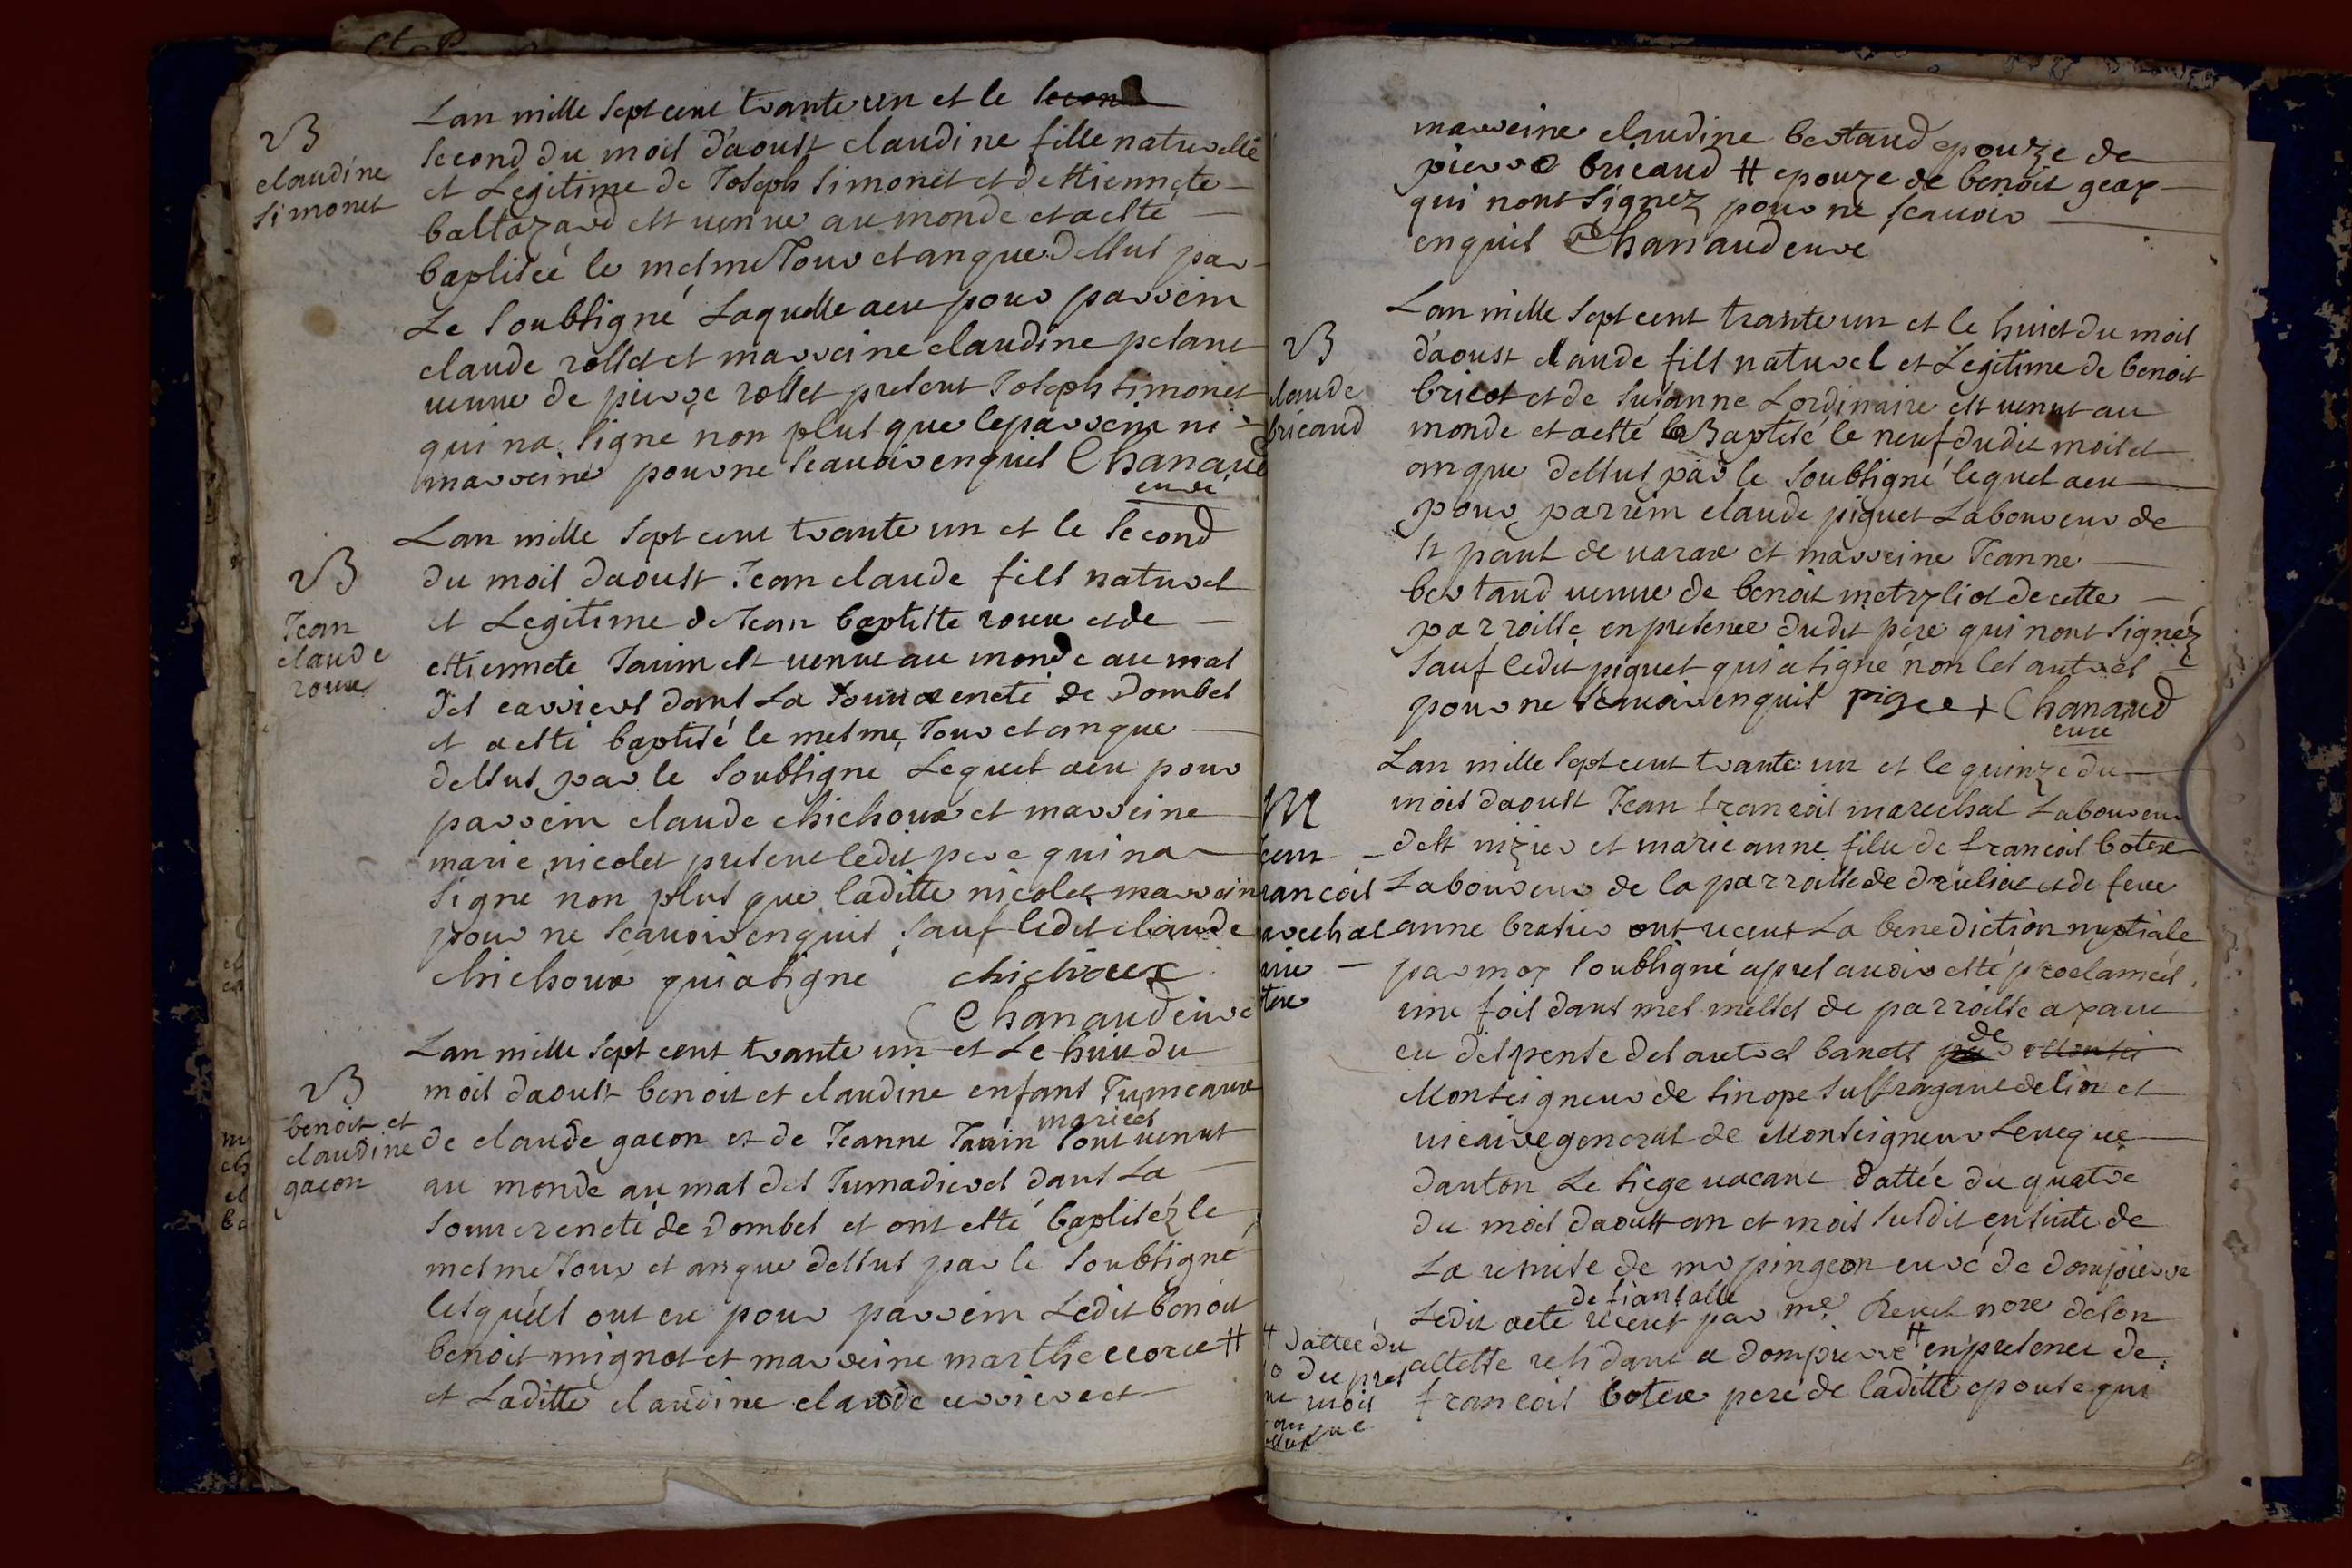 B
claudine
simonet
Lan mille sept cent trante un et le second
second du mois d'aoust claudine fille naturelle
et Legitime de Joseph simonet et dettiennete
baltazard est venue au monde et a esté
baptiséé le mesme Jour et an que dessus par
Le soubsigné Laquelle a eu pour parrein
claude rollet et marreine claudine pelant
veuve de pierre rollet present Joseph simonet
qui na signe non plus que le parrein ni
marreine pour ne scauoir enquis Chanaud
curé
B
Jean
claude
roux
Lan mille sept cent trante un et le second
du mois daoust Jean claude fils naturel
et Legitime de Jean baptiste roux et de
ettiennete Tauin est venue au monde au mas
des carriers dans La souuereneté de Dombes
et a esté baptisé le mesme Jour et an que
dessus par le soubsigne Lequel a eu pour
parrein claude chichoux et marreine
marie nicolet present ledit pere qui na
signe non plus que laditte nicolet marrein
pour ne scauoir enquis sauf ledit claude
chichoux qui a signe chichoux
Chanaud curé
B
benoit et
claudine
gacon
Lan mille sept cent trante un et Le huit du
mois daoust benoit et claudine enfans Jumeaux
de claude gacon et de Jeanne Tauin mariees sont venut
au monde au mas des Jumadieres dans La
souuereneté de Dombes et ont esté baptisez le
mesme Jour et an que dessus par le soubsigné
lesquels ont eu pour parrein Ledit benoit
benoit mignot et marreine marthe ecorce #
et Laditte claudine claude
marreine claudine bertaud epouze de
pierre bricaud # epouze de benoit geay
qui nont signez pour ne scauoir
enquis Chanaud cure
B
claude
bricaud
Lan mille sept cent trante un et le huict du mois
d'aoust claude fils naturel et Legitime de benoit
bricot et de susanne Lordinaire est venut au
monde et a esté Baptisé le neuf dudit mois et
an que dessus par le soubsigné lequel a eu
pour parrein claude piguet Laboureur de
st paul de varax et marreine Jeanne
bertaud veuve de benoit de cette
parroisse en presence dudit pere qui nont signéz
sauf ledit piguet qui a signé non les autres
pour ne scauoir enquis piget Chanaud
cure
M
rancois
arechal
Lan mille sept cent trante un et le quinze du
mois daoust Jean francois marechal Laboureur
de st nizier et marie anne fille de francois botex
Laboureur de la parroisse de druliat et de feue
anne brasier ont receut La benediction nuptiale
par moy soubsigné apres auoir esté proclameés
une fois dans mes messes de parroisse ayant
eu dispense des autres bancs de
Monseigneur de sinope suffragant de lion et
vicaire general de Monseigneur Leueque
dauton Le siege vacant dattée du quatre
du mois daoust an et mois susdit ensuite de
La remise de mr pingeon curé de dompierre
Ledit acte de fiansalle receut par me Reuel nore de son
altesse residant a dompierre # en presence de
francois botex pere de laditte epouse qui
# dattée du
du pres
mois